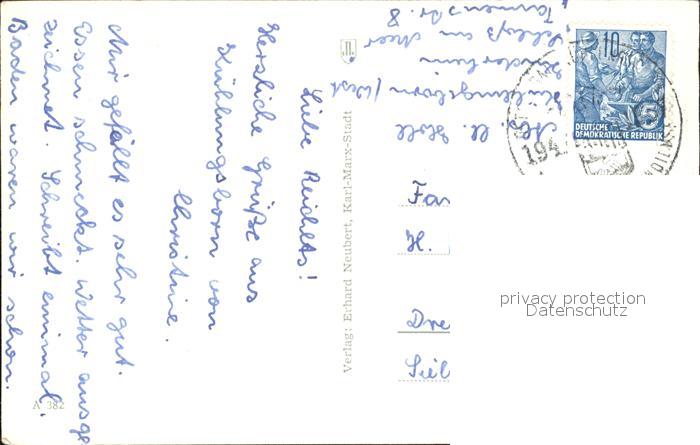 Liebe Reichelts!
Herzliche Grüße aus
Kühlungsborn von
Christine.
Mir gefällt es sehr gut.
Essen schmeckt. Wetter ausge
zeichnet. Schreibt einmal.
Baden waren wir schon.
A 382
Verlag: Erhard Neubert, Karl-Marx-Stadt
Kühlungsborn / West
Kinderheim
Schloß am Meer
Tannenstr. 8
10
5
DEUTSCHE
DEMOKRATISCHE REPUBLIK
194
Fa
H.
Dre
privacy protection
Datenschutz